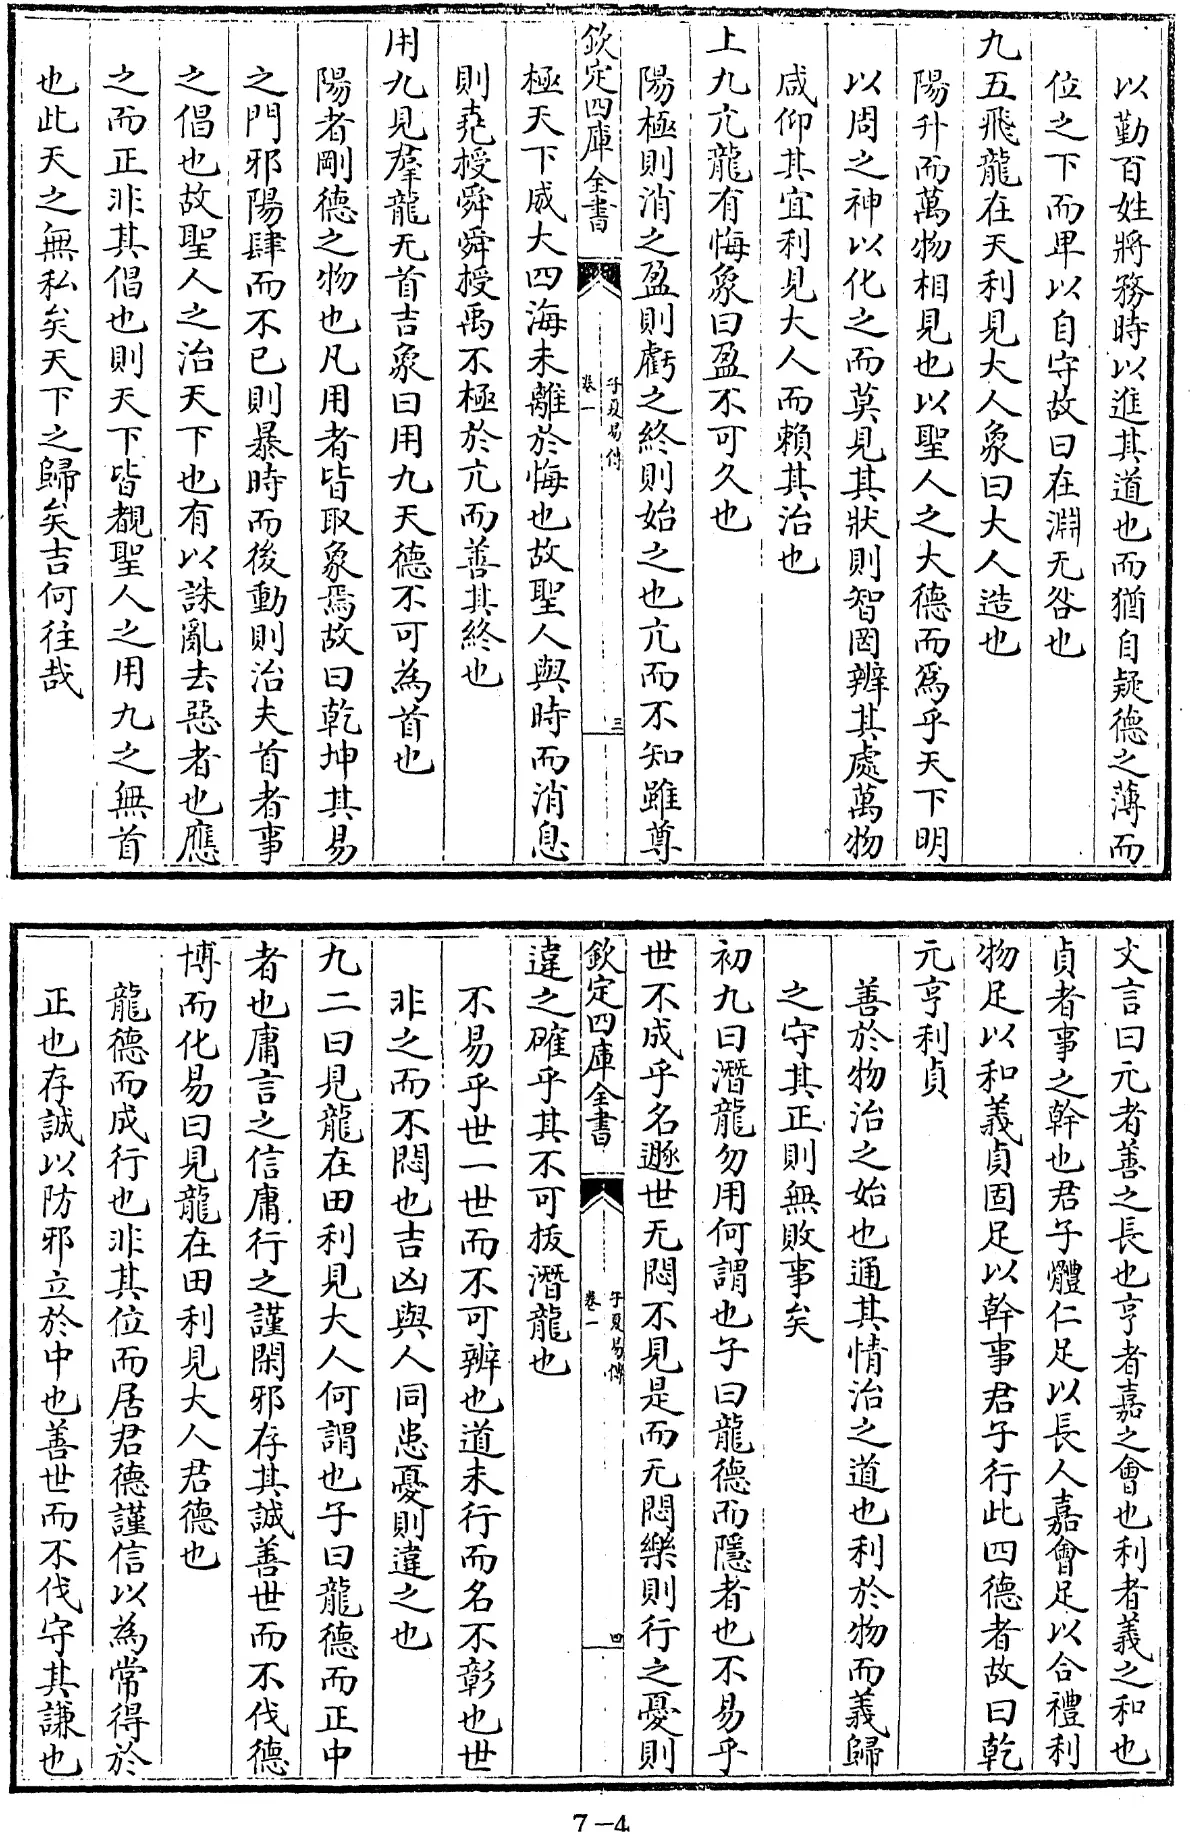 以勤百姓將務時以進其道也而猶自疑德之薄而
位之下而卑以自守故曰在淵无咎也
九五飛龍在天利見大人象曰大人造也
陽升而萬物相見也以聖人之大德而爲乎天下明
以周之神以化之而莫見其狀則智罔辨其處萬物
咸仰其宜利見大人而賴其治也
上九亢龍有悔象曰盈不可久也
陽極則消之盈則虧之終則始之也亢而不知雖尊
欽定四庫全書
子夏易傳
卷一
三
極天下威大四海未離於悔也故聖人與時而消息
則堯授舜舜授禹不極於亢而善其終也
用九見羣龍无首吉象曰用九天德不可為首也
陽者剛德之物也凡用者皆取象焉故曰乾坤其易
之門邪陽肆而不已則暴時而後動則治夫首者事
之倡也故聖人之治天下也有以誅亂去惡者也應
之而正非其倡也則天下皆覩聖人之用九之無首
也此天之無私矣天下之歸矣吉何往哉
文言曰元者善之長也亨者嘉之會也利者義之和也
貞者事之幹也君子體仁足以長人嘉會足以合禮利
物足以和義貞固足以幹事君子行此四德者故曰乾
元亨利貞
善於物治之始也通其情治之道也利於物而義歸
之守其正則無敗事矣
初九曰潛龍勿用何謂也子曰龍德而隱者也不易乎
世不成乎名遯世无悶不見是而无悶樂則行之憂則
欽定四庫全書
子夏易傳
卷一
四
違之確乎其不可拔潛龍也
不易乎世一世而不可辨也道未行而名不彰也世
非之而不悶也吉凶與人同患憂則違之也
九二曰見龍在田利見大人何謂也子曰龍德而正中
者也庸言之信庸行之謹閑邪存其誠善世而不伐德
博而化易曰見龍在田利見大人君德也
龍德而成行也非其位而居君德謹信以為常得於
正也存誠以防邪立於中也善世而不伐守其謙也
7-4